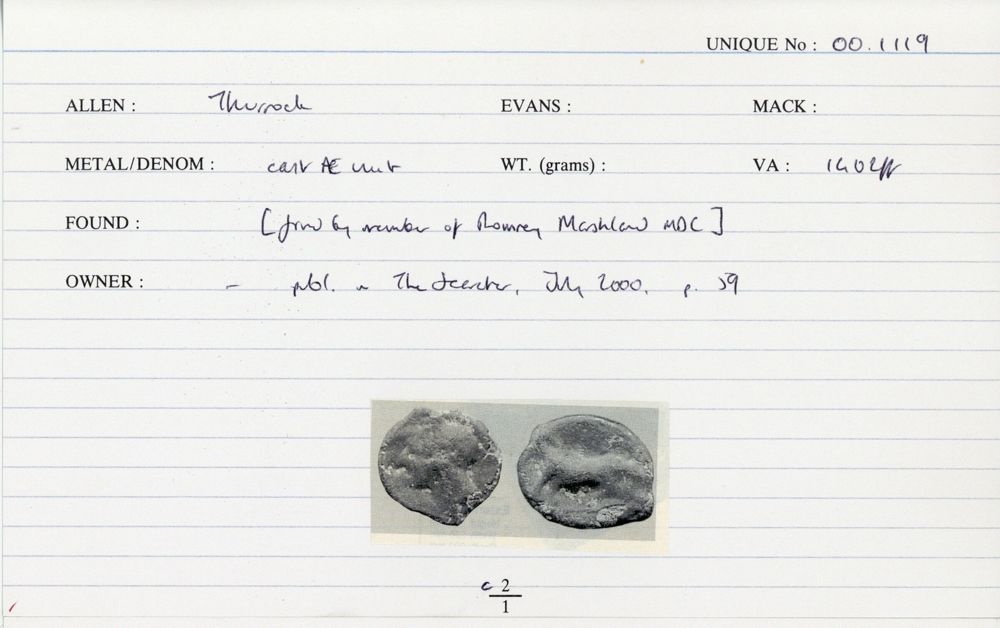 UNIQUE No : 00.1119
ALLEN : Thurrock EVANS : MACK :
METAL/DENOM : cast Æ unit WT. (grams) : VA : 1402ff
FOUND : [found by member of Romney Marshland MDC]
OWNER : - publ. in The Searcher, July 2000, p. 59
c 2
1